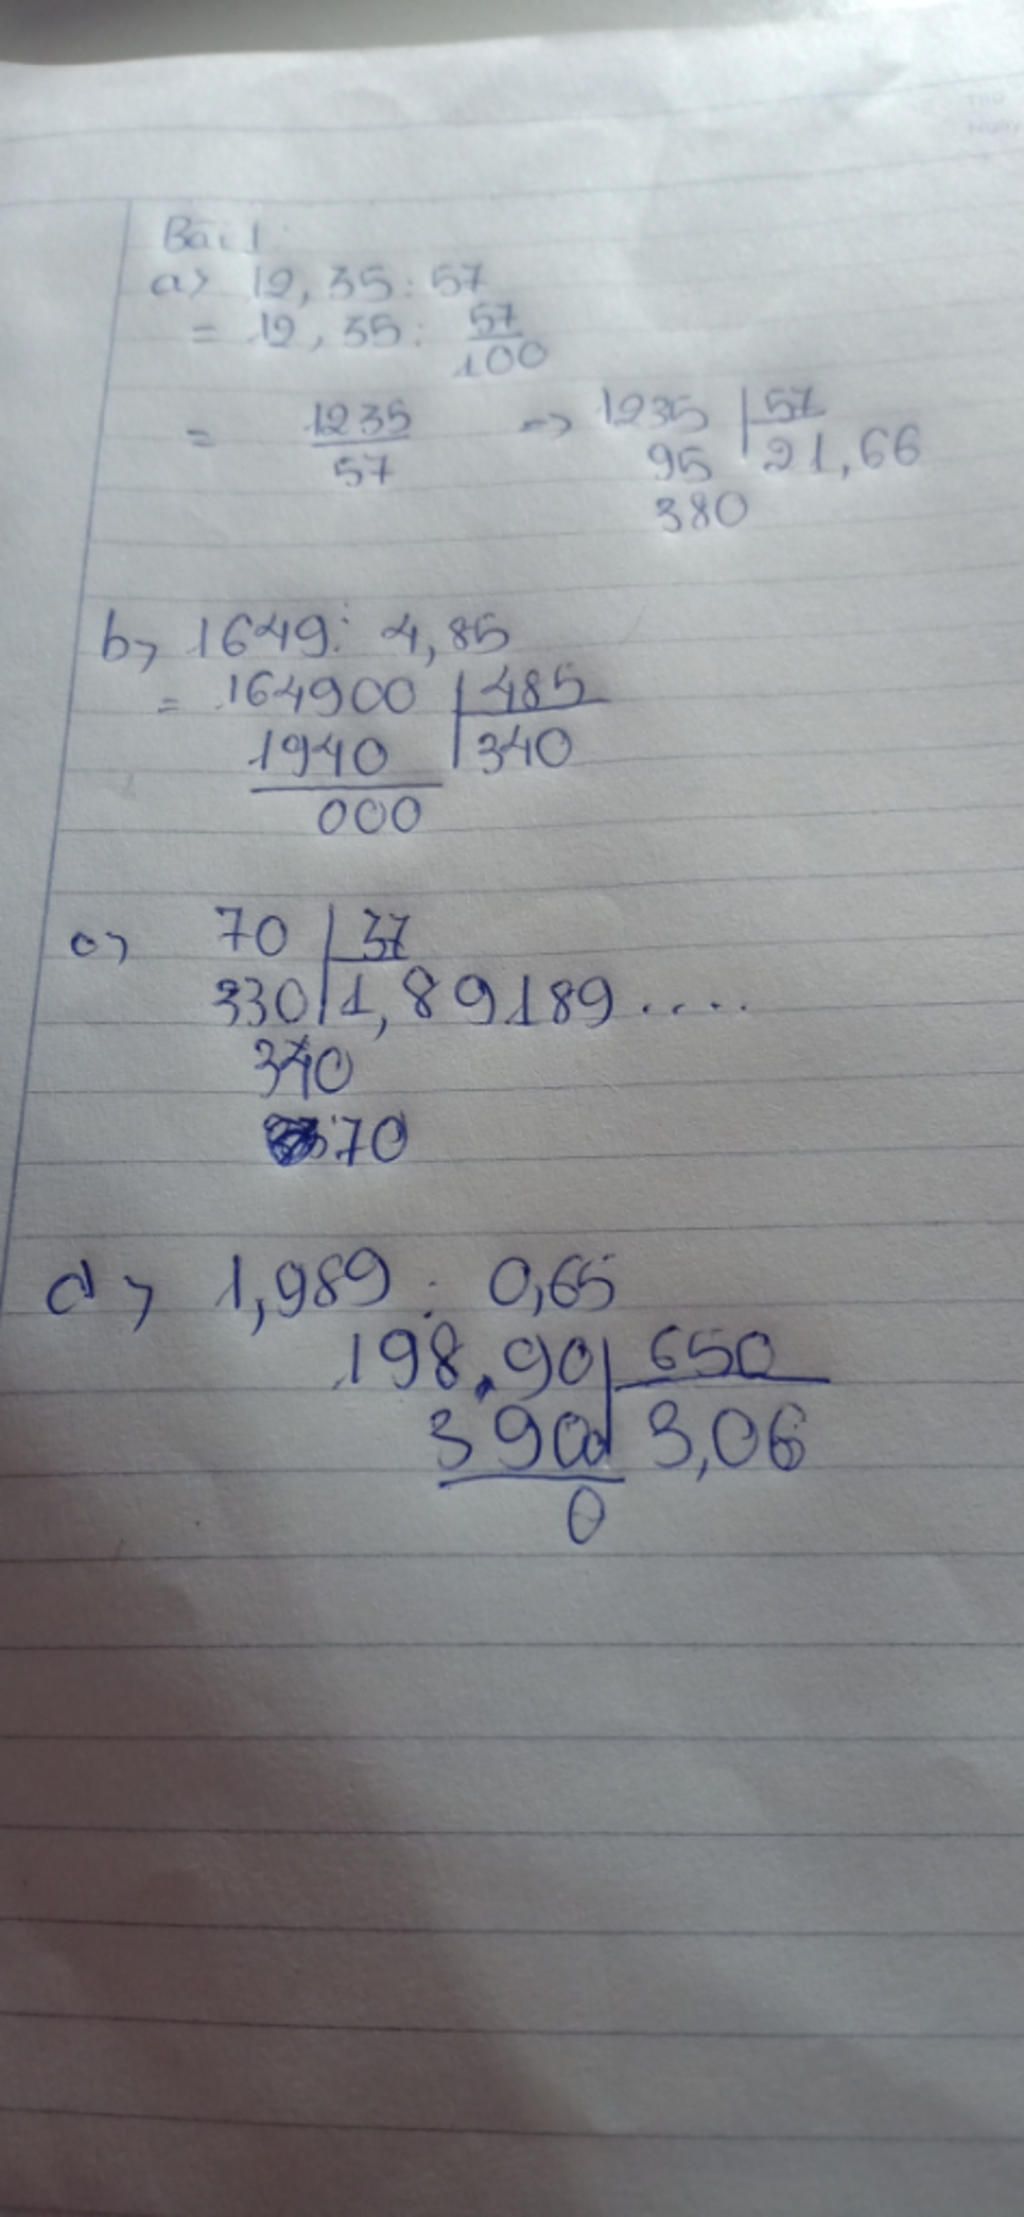 Bài 1
a> 12,35 : 57
= 12,35 : 57/100
= 1235/57 => 1235 | 57
95 | 21,66
380
b> 1649 : 4,85
= 164900 | 485
1940 | 340
000
c> 70 | 37
330 | 1,89189....
340
70
d> 1,989 : 0,65
198,90 | 650
3900 | 3,06
0